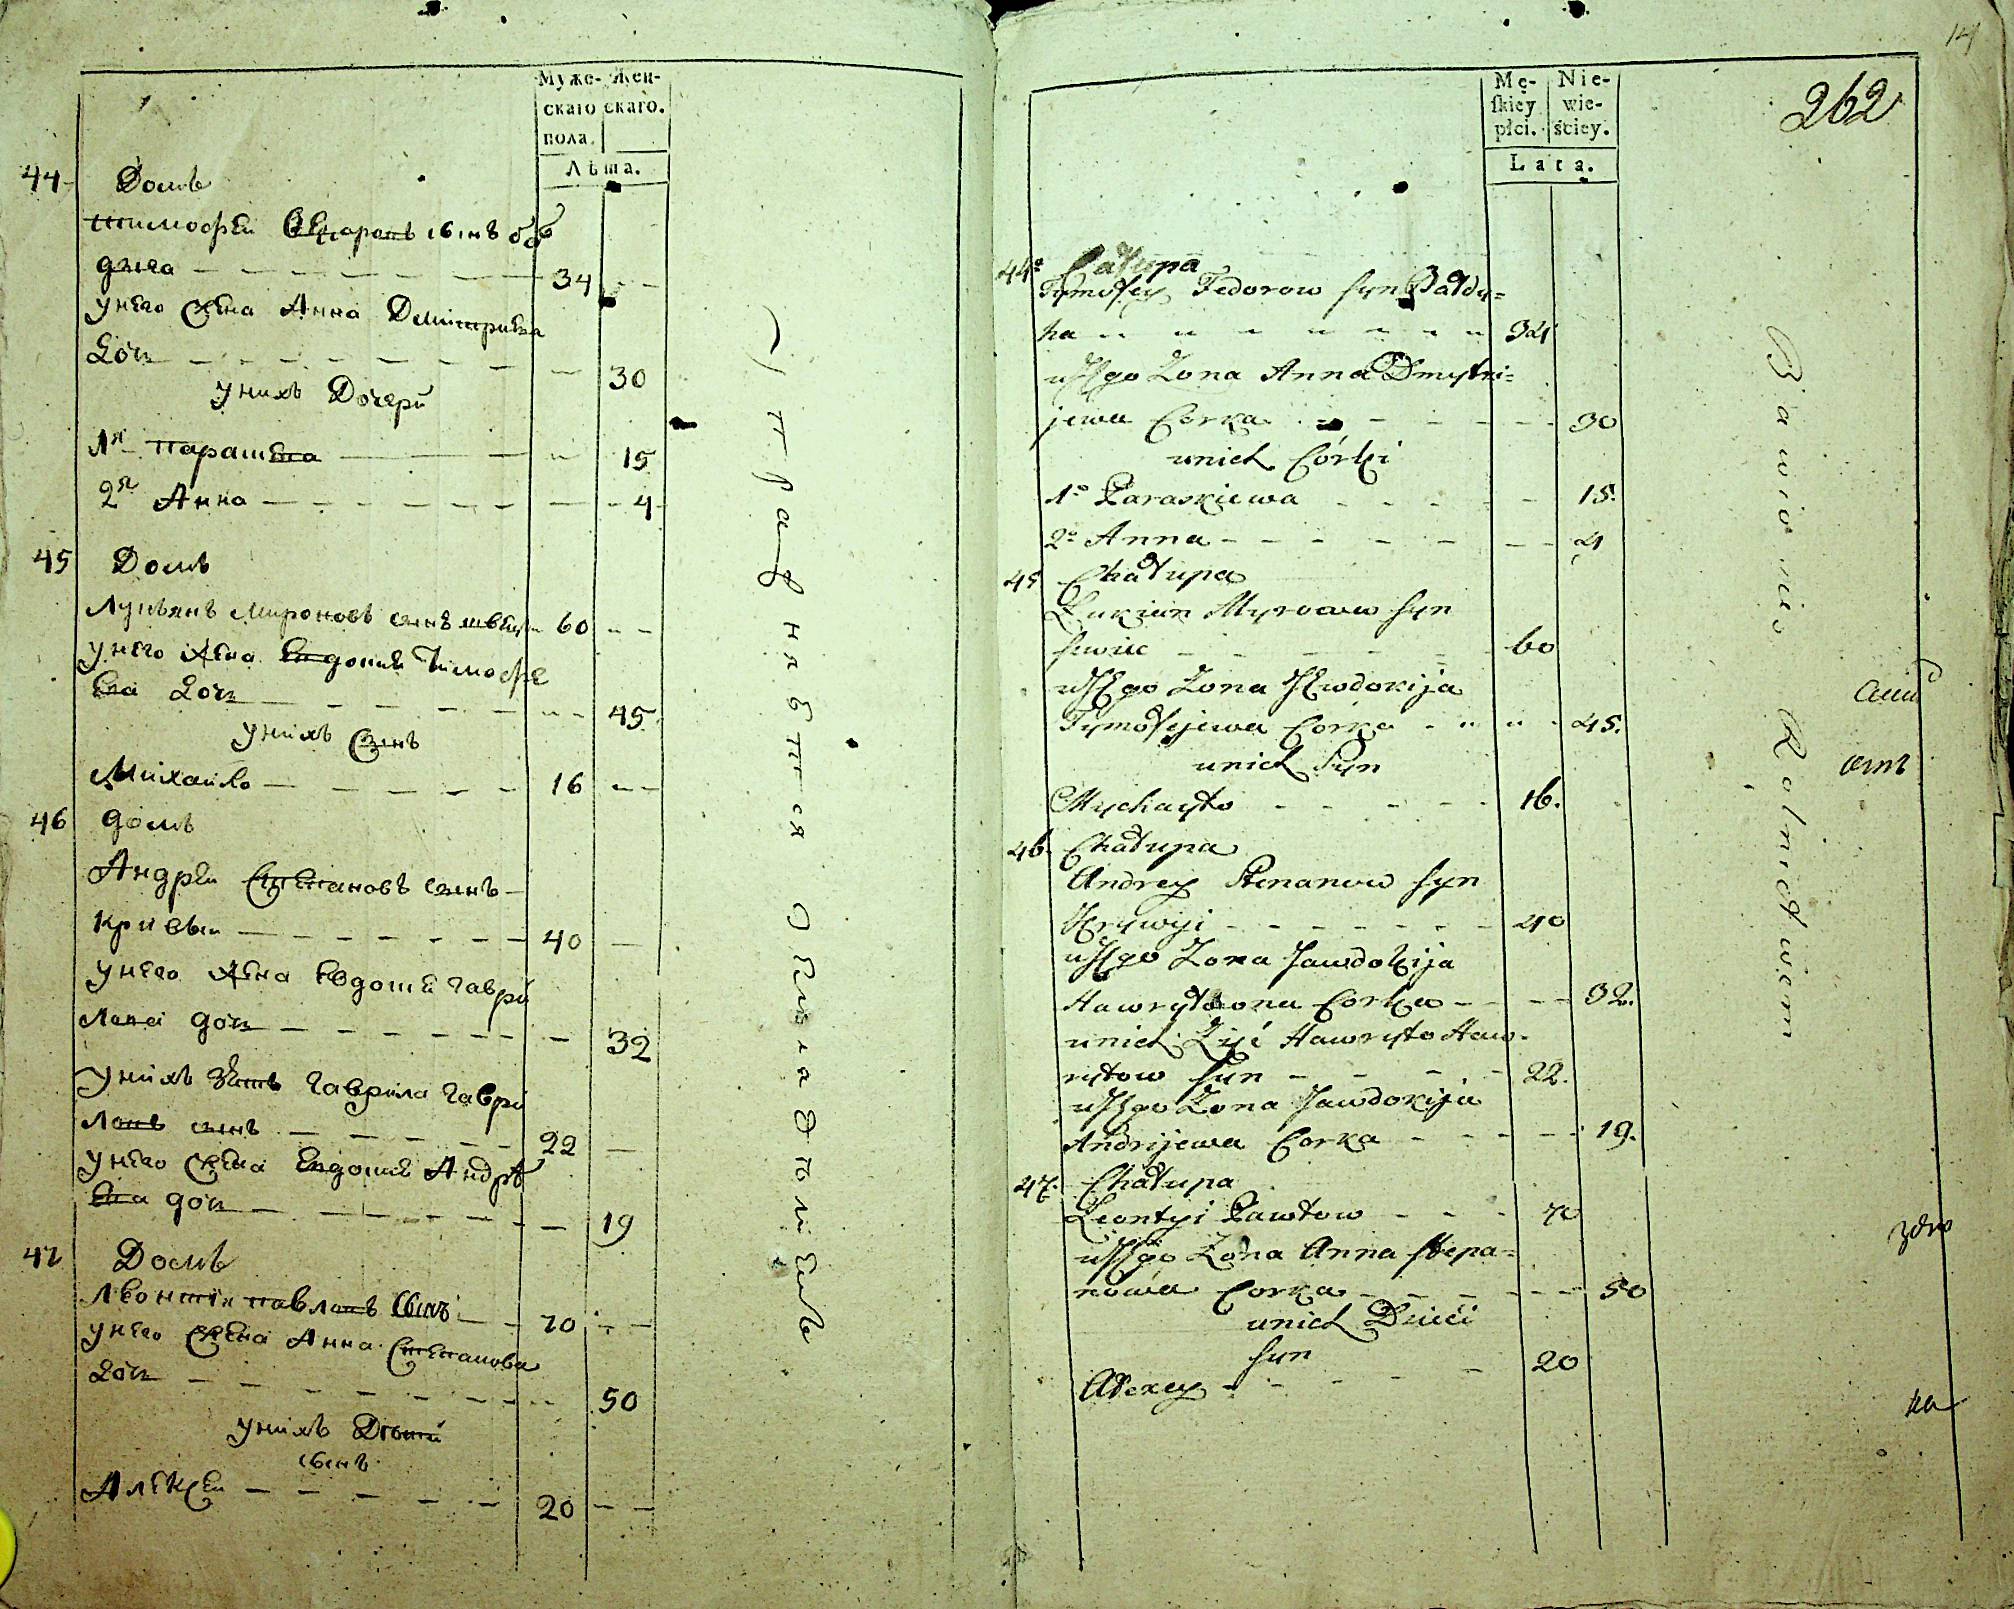 Муже- Жен-
скаго скаго.
пола.
Лѣта.
44 Домъ
Тимофей сынъ
34
унего жена Анна Дмитриева
Доч
30
унихъ Дочери
1я Парашева 15
2я Анна 4
45 Домъ
Лукьянъ Мироновъ сынъ 60
унего жена Евдокия Тимофе
ева Доч 45
унихъ Сынъ
Михайло 16
46 домъ
Андрей Степановъ сынъ
Кривый 40
унего жена Евдокия Гаври
лова доч 32
унихъ зять Гаврила Гаври
ловъ сынъ 22
унего жена Евдокия Андре
ева доч 19
47 Домъ
Леонтий Павловъ сынъ 70
унего жена Анна Степанова
Доч 50
унихъ Дети
сынъ
Алексей 20
управняется
14
262
Mę- Nie-
skiey wie-
płci. ściey.
Lata.
44º Chałupa
Tymofey Fedorow syn Bałdy=
ha 34
u Jego Zona Anna Dmytri=
jewa Corka 30
unich Córki
1º Paraskiewa 15.
2º Anna 4
45 Chałupa
Łukian Myronow syn
60
u Jego Zona Jewdokija
Tymofejewa Corka 45.
unich Syn
Mychayło 16.
46. Chałupa
Andrey Stepanow syn
Krywyi 40
u Jego Zona Jawdokija
Hawryłowna Corka 32.
unich Zięć Hawryło Haw-
ryłow syn 22.
u Jego Zona Jawdokija
Andrijewa Corka 19.
47. Chałupa
Leontyi Pawłow 70
u Jego Zona Anna Stepa=
nowa Corka 50
unich Dzieci
syn 20
Alexey
Bawią się Rolnictwem
на